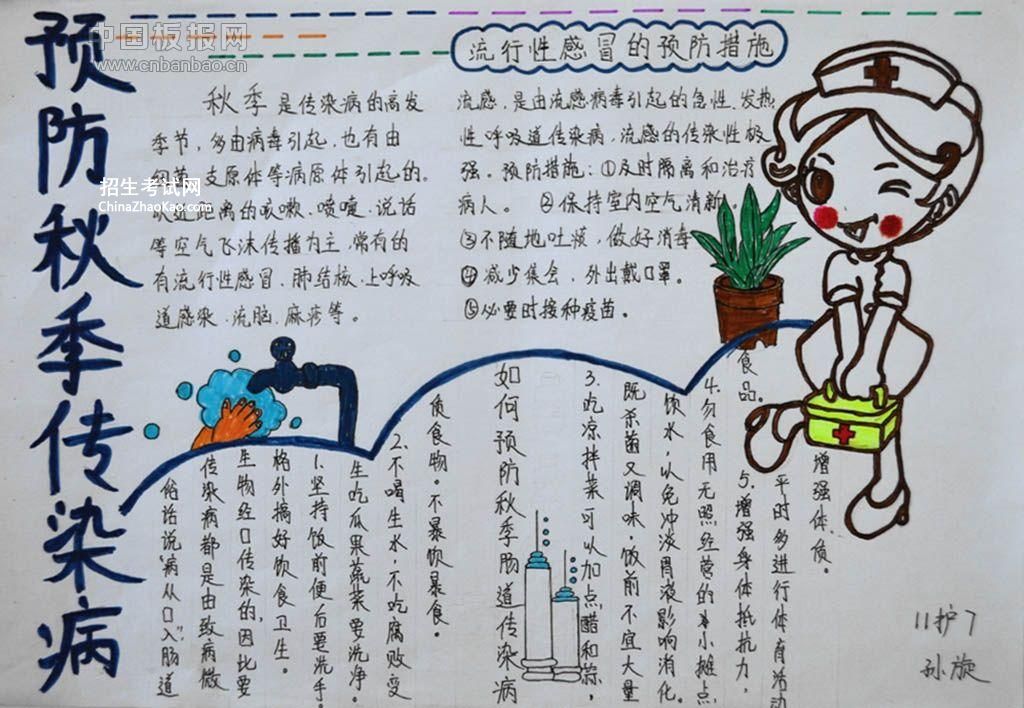 预防秋季传染病
中国板报网
www.cnbanbao.cn
流行性感冒的预防措施
秋季是传染病的高发
季节,多由病毒引起,也有由
支原体等病原体引起的。
近距离的咳嗽、喷嚏、说话
等空气飞沫传播为主,常有的
有流行性感冒、肺结核、上呼吸
道感染、流脑、麻疹等。
招生考试网
ChinaZhaoKao.com
流感,是由流感病毒引起的急性、发热
性呼吸道传染病,流感的传染性极
强。预防措施:①及时隔离和治疗
病人。 ②保持室内空气清新。
③不随地吐痰,做好消毒
④减少集会,外出戴口罩。
⑤必要时接种疫苗。
如何预防秋季肠道传染病
俗话说"病从口入",肠道
传染病都是由致病微
生物经口传染的,因此要
格外搞好饮食卫生。
1.坚持饭前便后要洗手。
生吃瓜果蔬菜要洗净。
2.不喝生水,不吃腐败变
质食物。不暴饮暴食。
3.吃凉拌菜可以加点醋和蒜,
既杀菌又调味,饭前不宜大量
饮水,以免冲淡胃液影响消化。
4.勿食用无照经营的小摊点
食品。 5.增强身体抵抗力,
平时多进行体育活动
增强体质。
11护7
孙旋